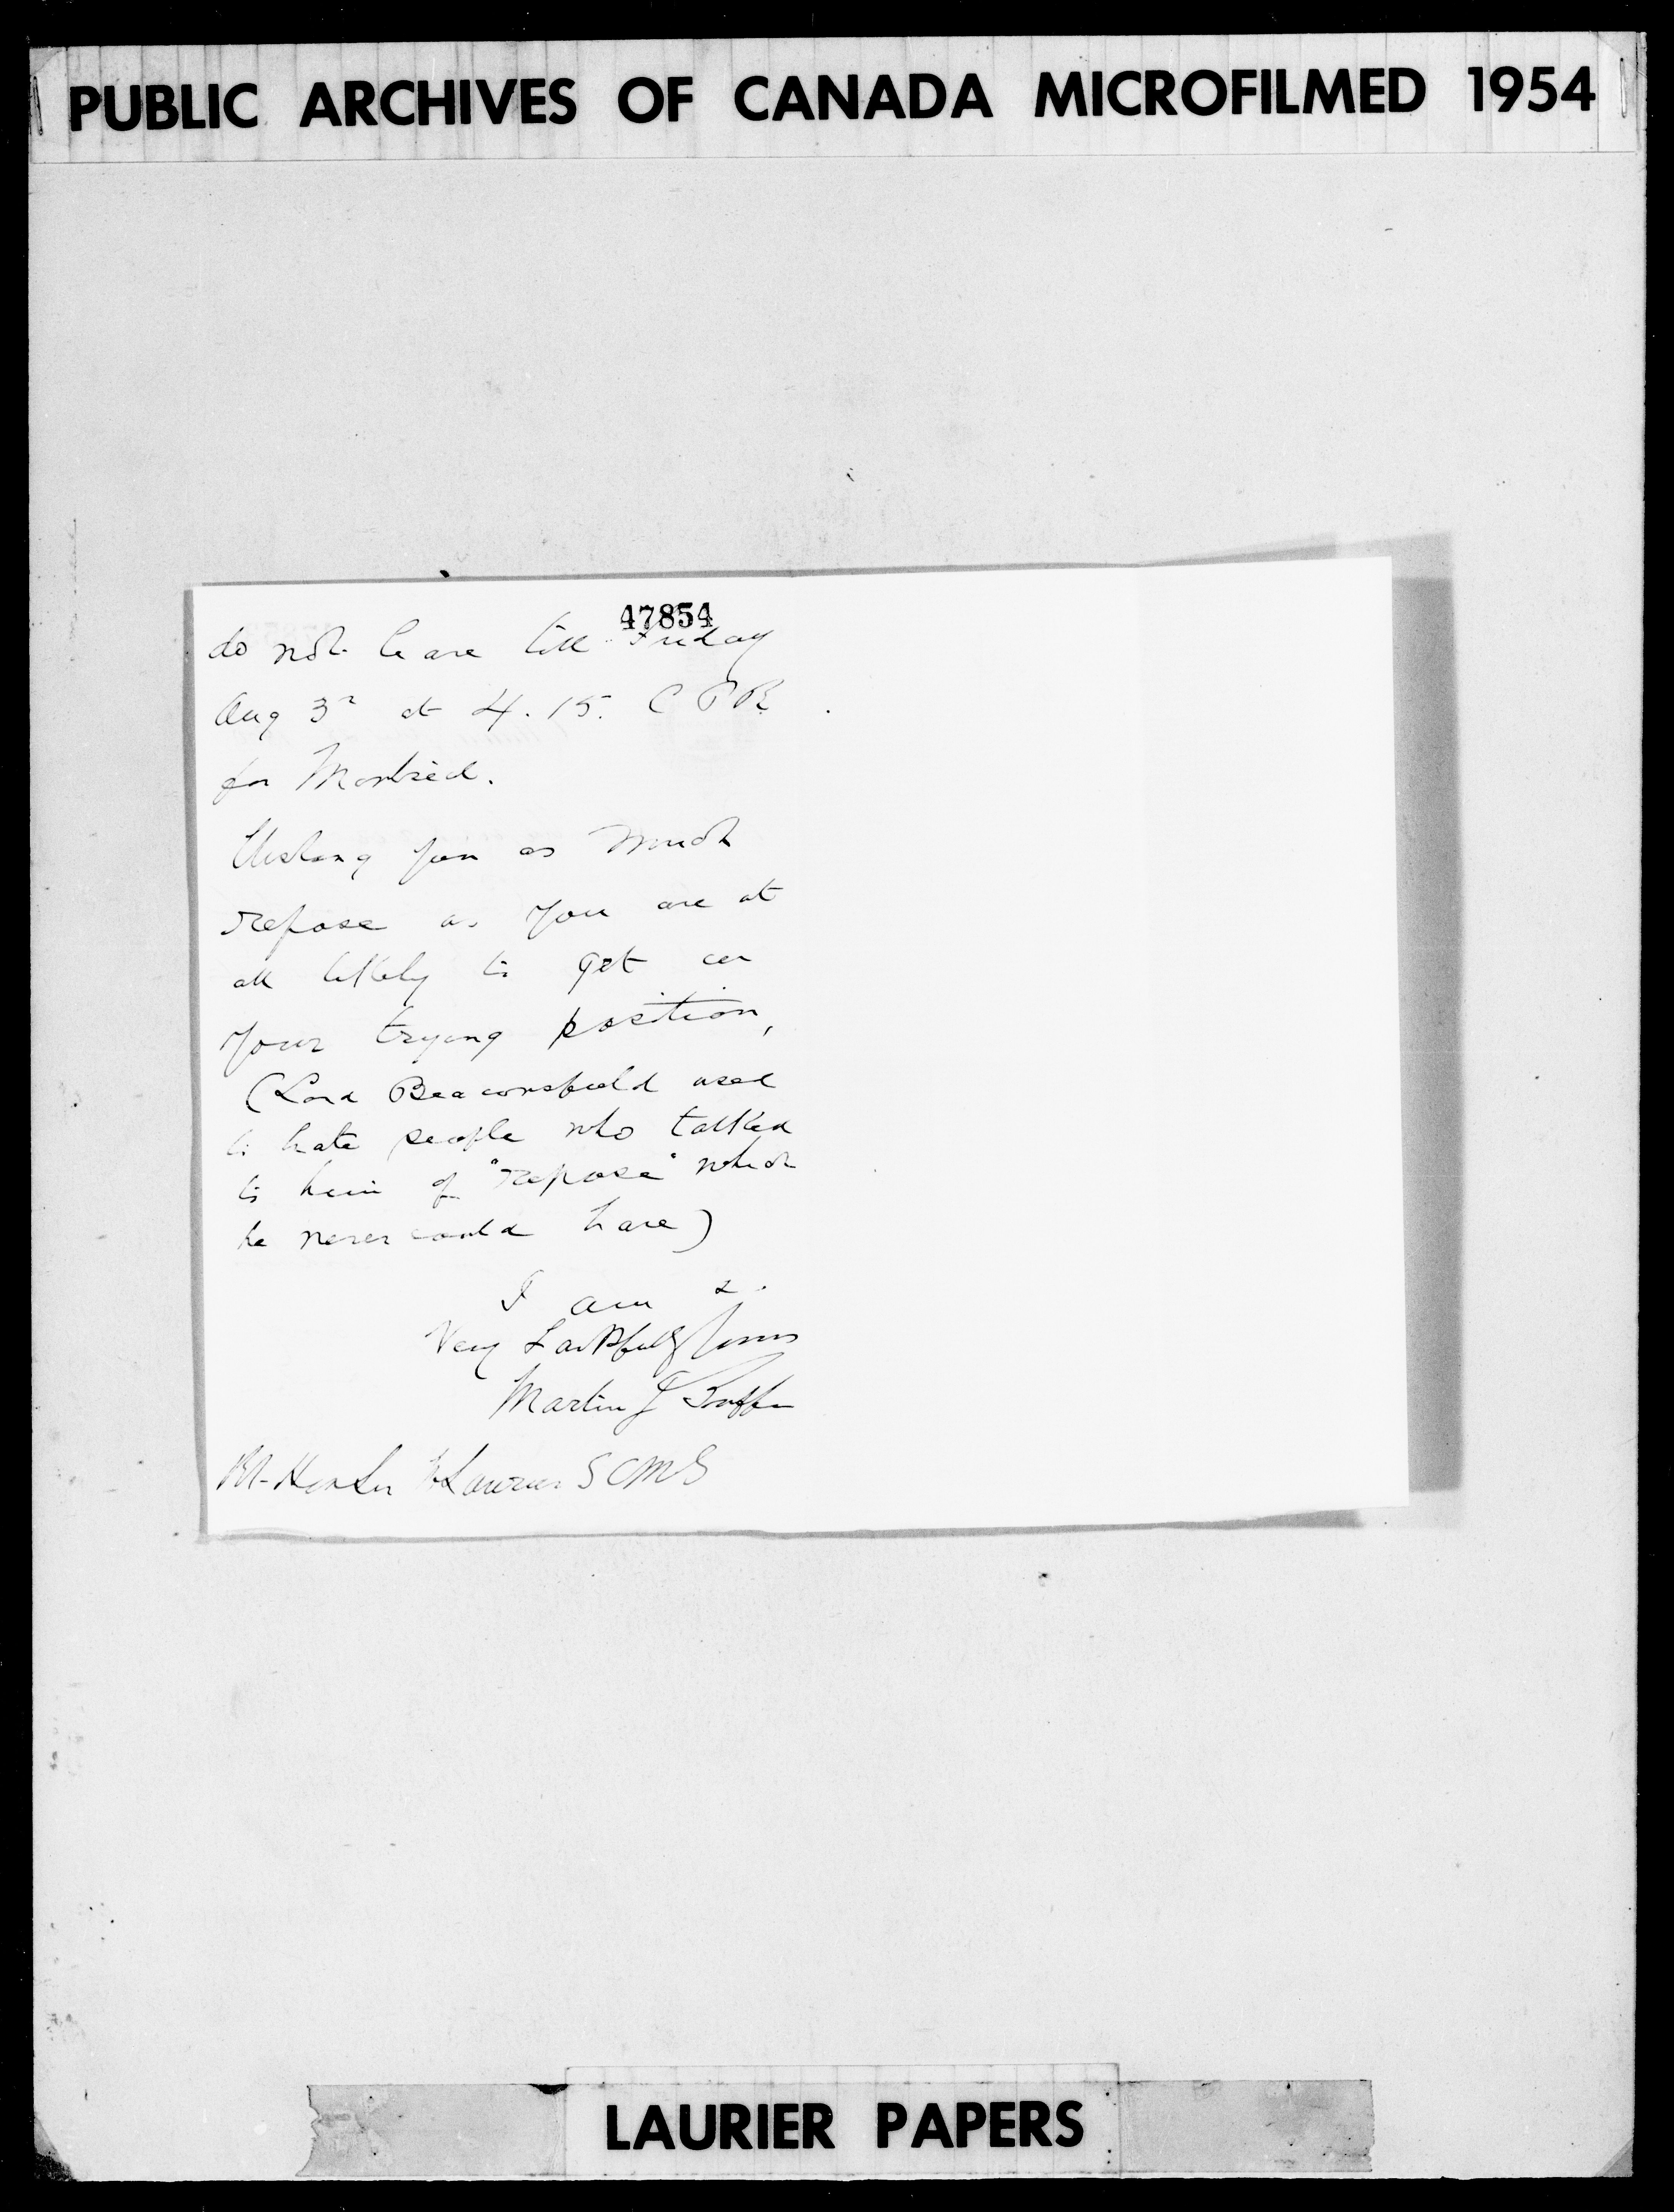 PUBLIC ARCHIVES OF CANADA MICROFILMED 1954
47854
do not leave till Friday
Aug 3rd at 4.15. C P R.
for Montreal.
Wishing you as much
repose as you are at
all likely to get in
your trying position,
(Lord Beaconsfield used
to hate people who talked
to him of "repose" which
he never could have)
I am &.
Very Faithfully Yours
Martin J Griffin
Rt. Hon Sir W Laurier GCMG
LAURIER PAPERS